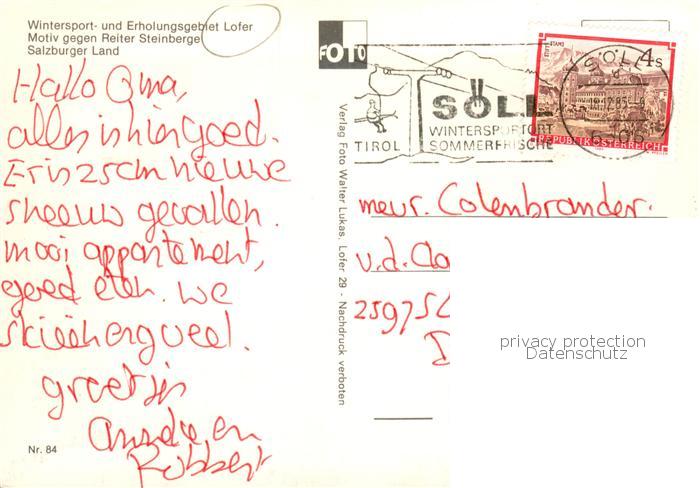 Wintersport- und Erholungsgebiet Lofer
Motiv gegen Reiter Steinberge
Salzburger Land
Hallo Oma,
alles is hier goed.
Er is 25cm nieuwe
sneeuw gevallen.
mooi appartement,
goed eten. we
skiën erg veel.
groetjes
en
Robbert
Nr. 84
FOTO
Verlag Foto Walter Lukas, Lofer 29 - Nachdruck verboten
TIROL
SÖLL
WINTERSPORTORT
SOMMERFRISCHE
STIFT STAMS
4s
SÖLL
6306
REPUBLIK ÖSTERREICH
mevr. Colenbrander.
v.d.
privacy protection
Datenschutz